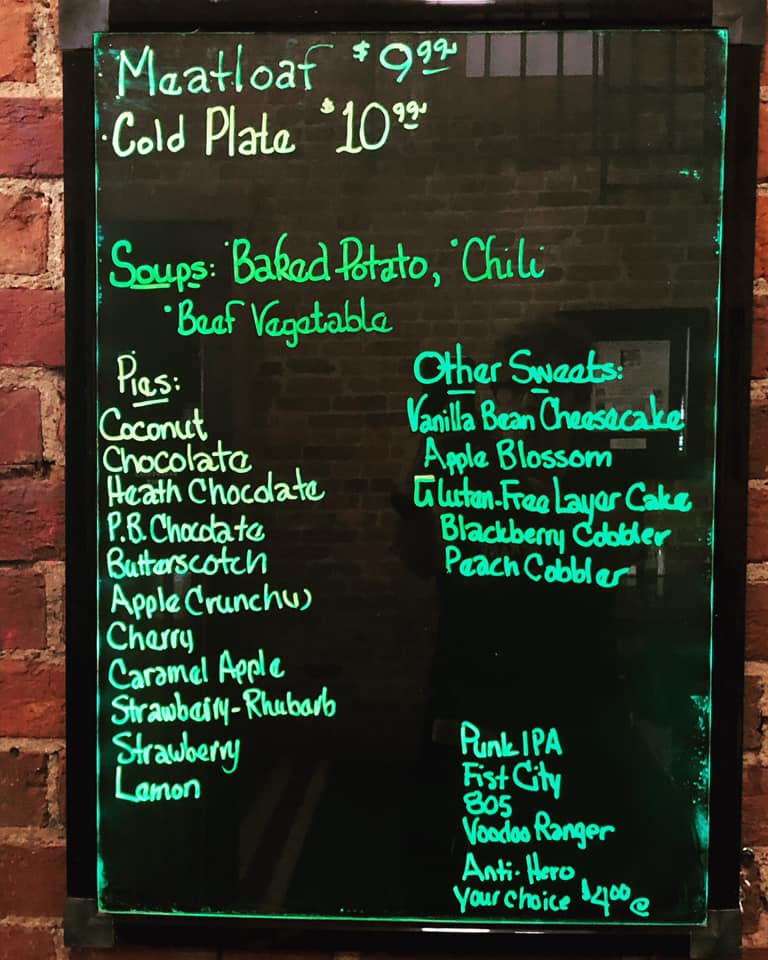 Meatloaf $9.99
Cold Plate $10.99
Soups: Baked Potato, Chili
Beef Vegetable
Pies:
Coconut
Chocolate
Heath Chocolate
P.B. Chocolate
Butterscotch
Apple Crunch
Cherry
Caramel Apple
Strawberry-Rhubarb
Strawberry
Lemon
Other Sweets:
Vanilla Bean Cheesecake
Apple Blossom
Gluten-Free Layer Cake
Blackberry Cobbler
Peach Cobbler
Punk IPA
Fist City
805
Voodoo Ranger
Anti-Hero
Your choice $4.00 e